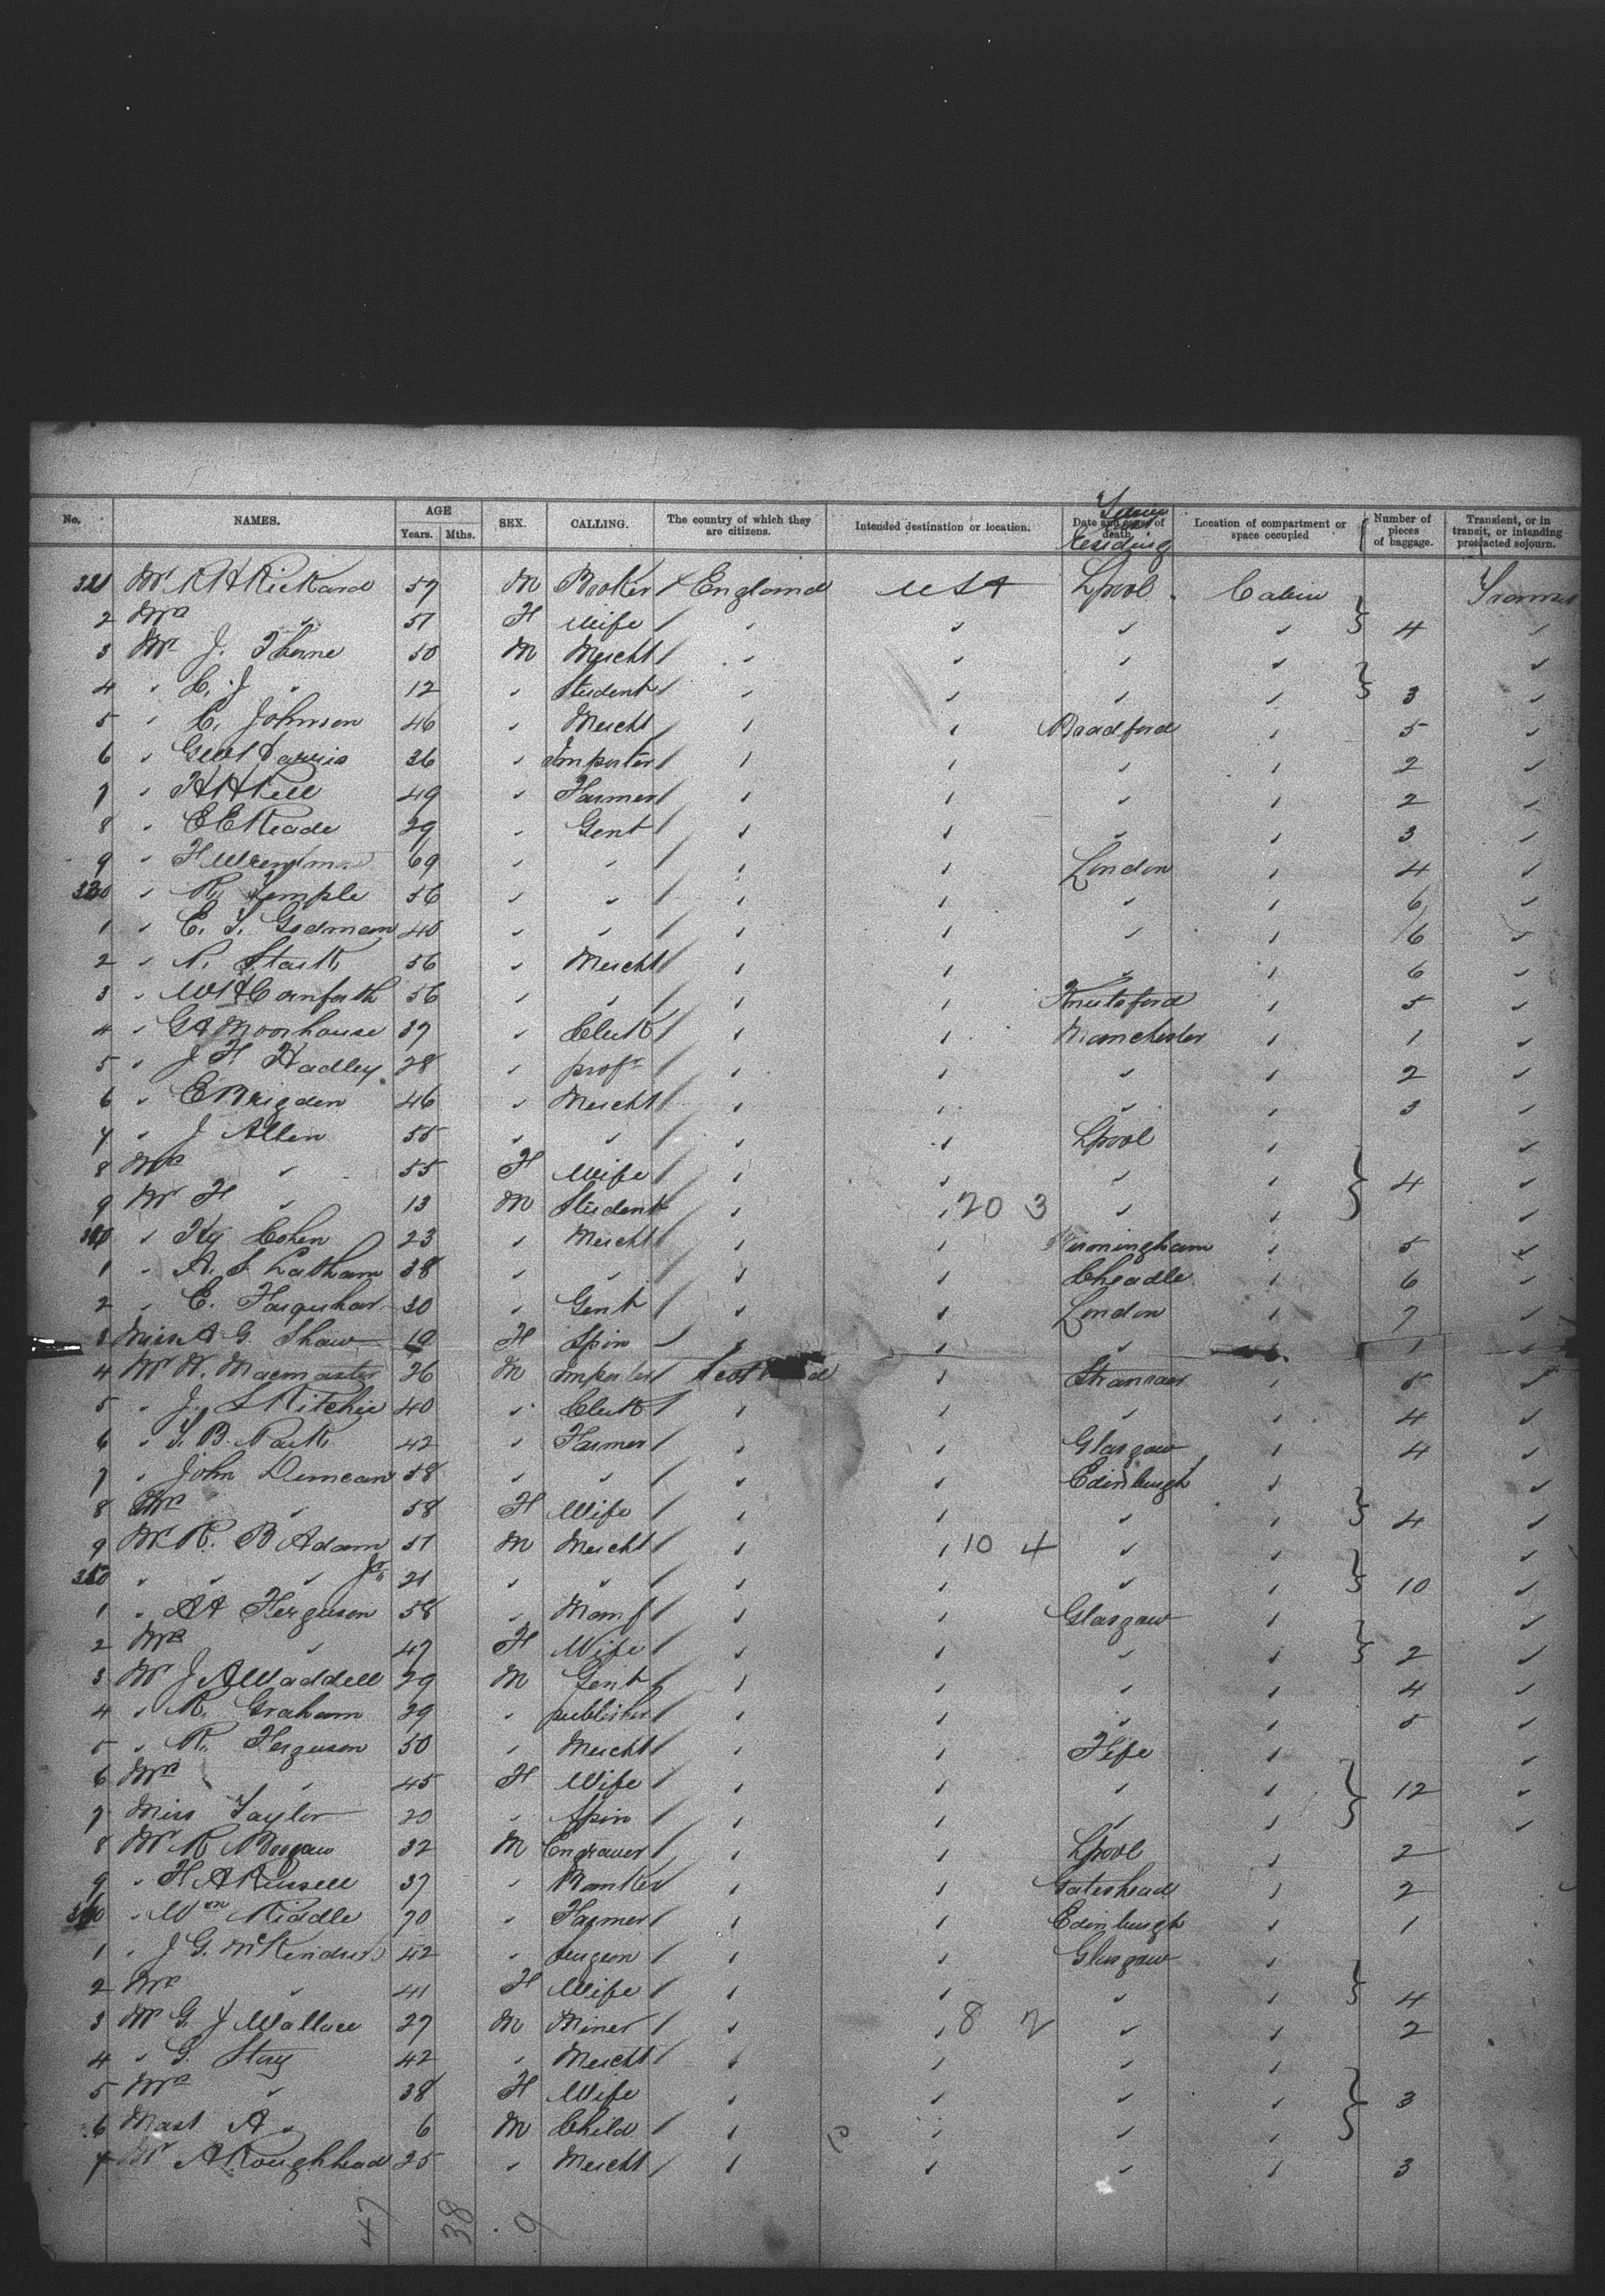 No. NAMES. AGE Years. Mths. SEX. CALLING. The country of which they are citizens. Intended destination or location. Date and cause of death. Residing Location of compartment or space occupied Number of pieces of baggage. Transient, or in transit, or intending protracted sojourn.
321 Mr R H Rickard 57 M Broker England USA Lpool Cabin
2 Mrs " 51 F Wife " " " " 4 "
3 Mr J. Thorne 50 M Mercht " " " " "
4 " C. J " 12 " Student " " " " 3 "
5 " C. Johnson 46 " Mercht " " Bradford " 5 "
6 " 36 " Importer " " " " 2 "
7 " 49 " Farmer " " " " 2 "
8 " E E Reade 29 " Gent " " " " 3 "
9 " 69 " " " " London " 4 "
330 " R. Temple 56 " " " " " " 6 "
1 " E. T. Godman 40 " " " " " " 6 "
2 " Stark 56 " Mercht " " " " 6 "
3 " Cornforth 56 " " " " Knutsford " 5 "
4 " G A Moorhouse 37 " Clerk " " Manchester " 1 "
5 " J H Hadley 28 " profr " " " " 2 "
6 " E Brigden 46 " Mercht " " " " 3 "
7 " J Allen 55 " " " " Lpool " "
8 Mrs " 55 F Wife " " " " 4 "
9 Mr H " 13 M Student " " 20 3 " " "
340 " Hy Cohen 23 " Mercht " " Birmingham " 5 "
1 " A. S Latham 38 " " " " Cheadle " 6 "
2 " E. Farquhar 30 " Gent " " London " 7 "
3 Miss A G. Shaw 19 F Spin " " " " 1 "
4 Mr W. Macmaster 26 M Importer Scotland " Stranraer " 5 "
5 " J. S Ritchie 40 " Clerk " " " " 4 "
6 " T. B. Park 42 " Farmer " " Glasgow " 4 "
7 " John Duncan 58 " " " " Edinburgh " "
8 Mrs " 58 F Wife " " " " 4 "
9 Mr R. B Adam 51 M Mercht " " 10 4 " " "
350 " " " Jr 21 " " " " " " 10 "
1 " Ferguson 58 " Manf " " Glasgow " "
2 Mrs " 47 F Wife " " " " 2 "
3 Mr J A Waddell 29 M Gent " " " " 4 "
4 " R. Graham 29 " publisher " " " " 5 "
5 " R. Ferguson 50 " Mercht " " Fife " "
6 Mrs " 45 F Wife " " " " 12 "
7 Miss Taylor 20 " Spin " " " " "
8 Mr R 32 M Engraver " " Lpool " 2
9 " H A Russell 37 " Banker " " Gateshead " 2
360 " Wm Riddle 70 " Farmer " " Edinburgh " 1
1 " J G. McKendrick 42 " Surgeon " " Glasgow "
2 Mrs " 41 F Wife " " " " 4
3 Mr G. J Wallace 27 M Miner " " 8 2 " " 2
4 " G. Story 42 " Mercht " " " "
5 Mrs " 38 F Wife " " " " 3
6 Mast A " 6 M Child " " " "
7 Mr A Roughhead 25 " Mercht " " " " 3
47 38 9